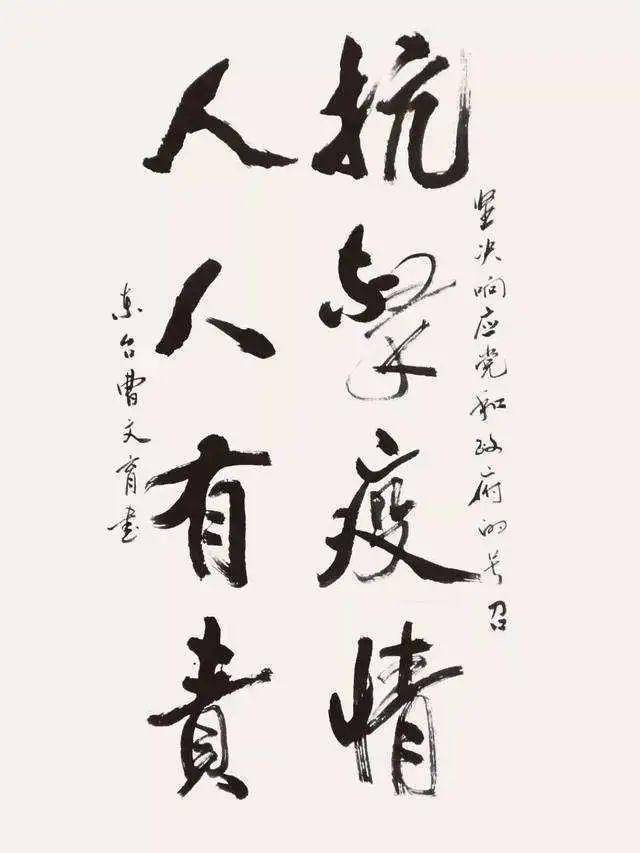 坚决响应党和政府的号召
抗擊疫情
人人有責
东台曹文育書